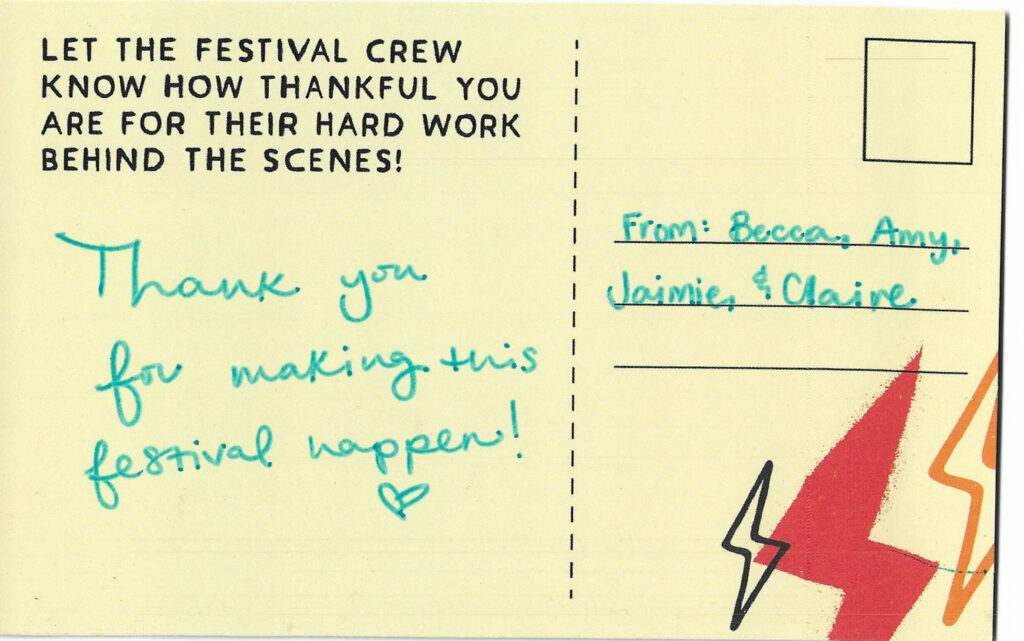 LET THE FESTIVAL CREW
KNOW HOW THANKFUL YOU
ARE FOR THEIR HARD WORK
BEHIND THE SCENES!
Thank you
for making this
festival happen!
From: Becca, Amy,
Jaimie, & Claire